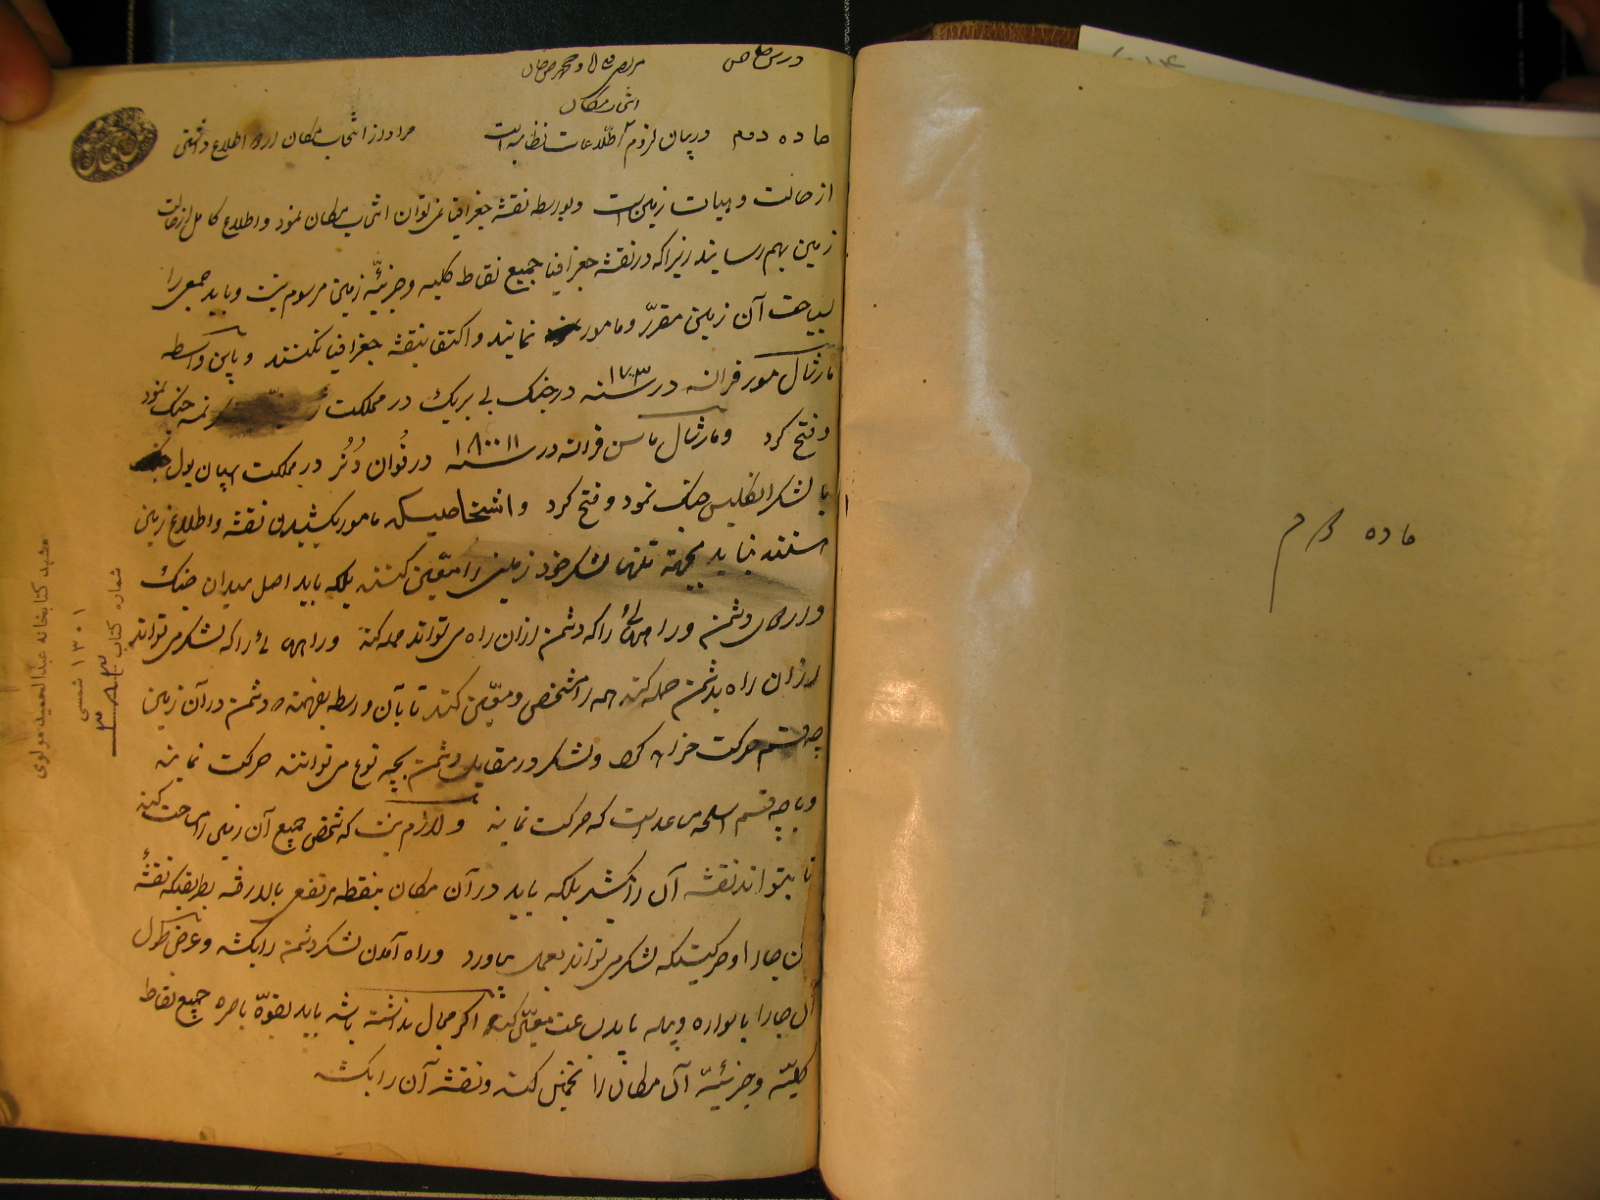 ماده دوم
درس
انتخاب مکان
ماده دویم در بیان لزوم اطلاعات نظامیه است مراد از انتخاب مکان اردو اطلاع داشتن
از حالت و هیات زمین است و بواسطه نقشه جغرافیا نمی‌توان انتخاب مکان نمود و اطلاع کامل از حالت
زمین بهم رسانید زیرا که در نقشه جغرافیا جمیع نقاط کلیه و جزئیّه زمین مرسوم نیست و باید جمعی را
بسیاحت آن زمین مقرّر و مامور نمایند و اکتفا بنقشه جغرافیا نکنند و باین واسطه
مارشال مور فرانسه در سنه ۱۷۰۳ در جنک در مملکت نمسه جنک نمود
و فتح کرد و مارشال ماسن فرانسه در سنه ۱۸۰۰۱۱ در در مملکت اسپانیول
با لشکر انکلیس جنک نمود و فتح کرد و اشخاصیکه مامور بکشیدن نقشه و اطلاع زمین
هستند نباید بجهة تنها لشکر خود زمین را معیّن کنند بلکه باید اصل میدان جنک
و اردوی دشمن و راههائی را که دشمن از آن راه می‌تواند حمله کند و راههائی را که لشکر می‌تواند
از آن راه بدشمن حمله کند همه را مشخص و معیّن کند تا بآن واسطه بفهمند که دشمن در آن زمین
چه قسم حرکت خواهد کرد و لشکر در مقابل دشمن بچه نوع می‌توانند حرکت نمایند
و با چه قسم اسلحه مساعد است که حرکت نمایند و لازم نیست که شخص جمیع آن زمین را مساحت کند
تا بتواند نقشه آن را بکشد بلکه باید در آن مکان بنقطه مرتفع بالا رفته بطریقیکه نقشهٔ
آن جا را و حرکتیکه لشکر می‌تواند بعمل بیاورد و راه آمدن لشکر دشمن را بکشد و عرض و طول
آن جا را با سواره و پیاده یا بساعت معیّن کند اکر مجال نداشته باشد باید بقوّه باصره جمیع نقاط
کلیّه و جزئیّه آن مکان را تخمین کند و نقشه آن را بکشد
مشهد کتابخانه عبدالحمید مولوی
۱۳۰۱ شمسی
شماره کتاب